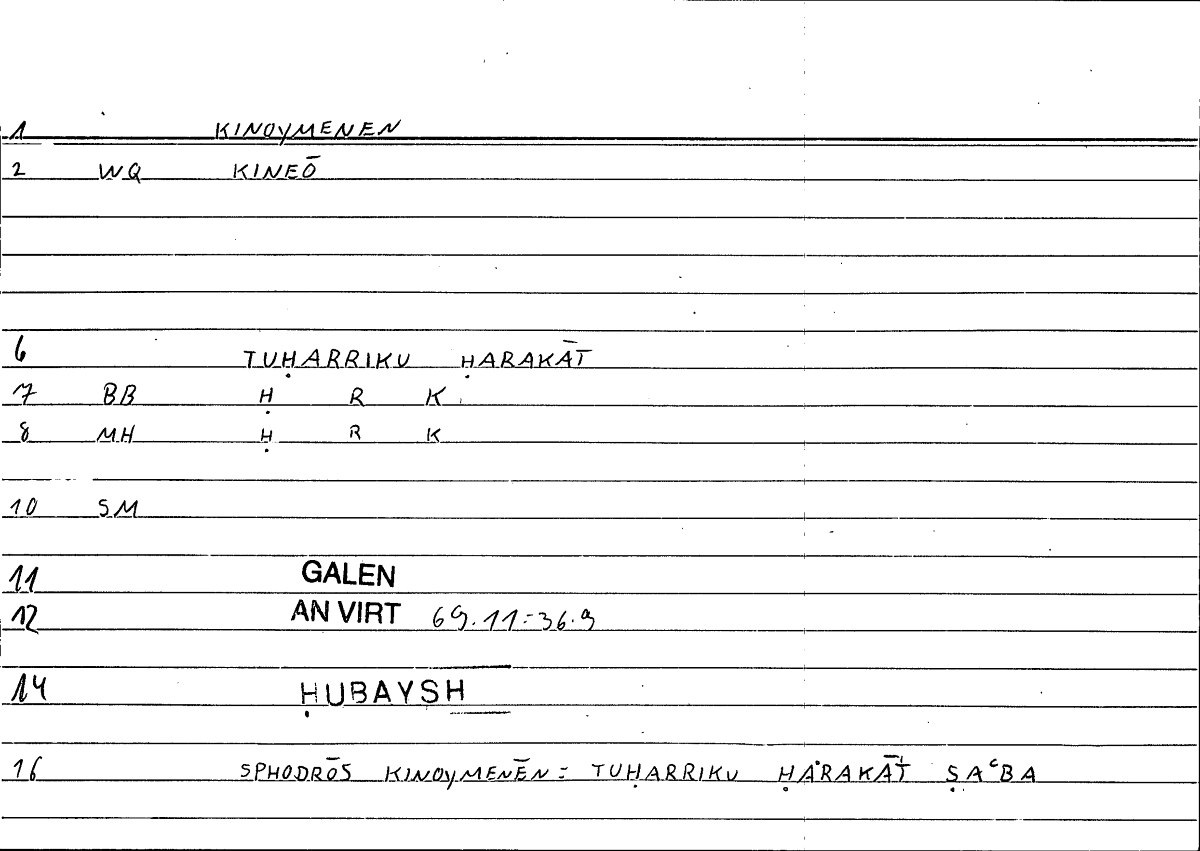 1 KINOYMENEN
2 WQ KINEŌ
6 TUḤARRIKU ḤARAKĀT
7 BB Ḥ R K
8 MH Ḥ R K
10 SM
11 GALEN
12 AN VIRT 69.11=36.9
14 ḤUBAYSH
16 SPHODRŌS KINOYMENĒN = TUḤARRIKU ḤARAKĀT ṢAᶜBA